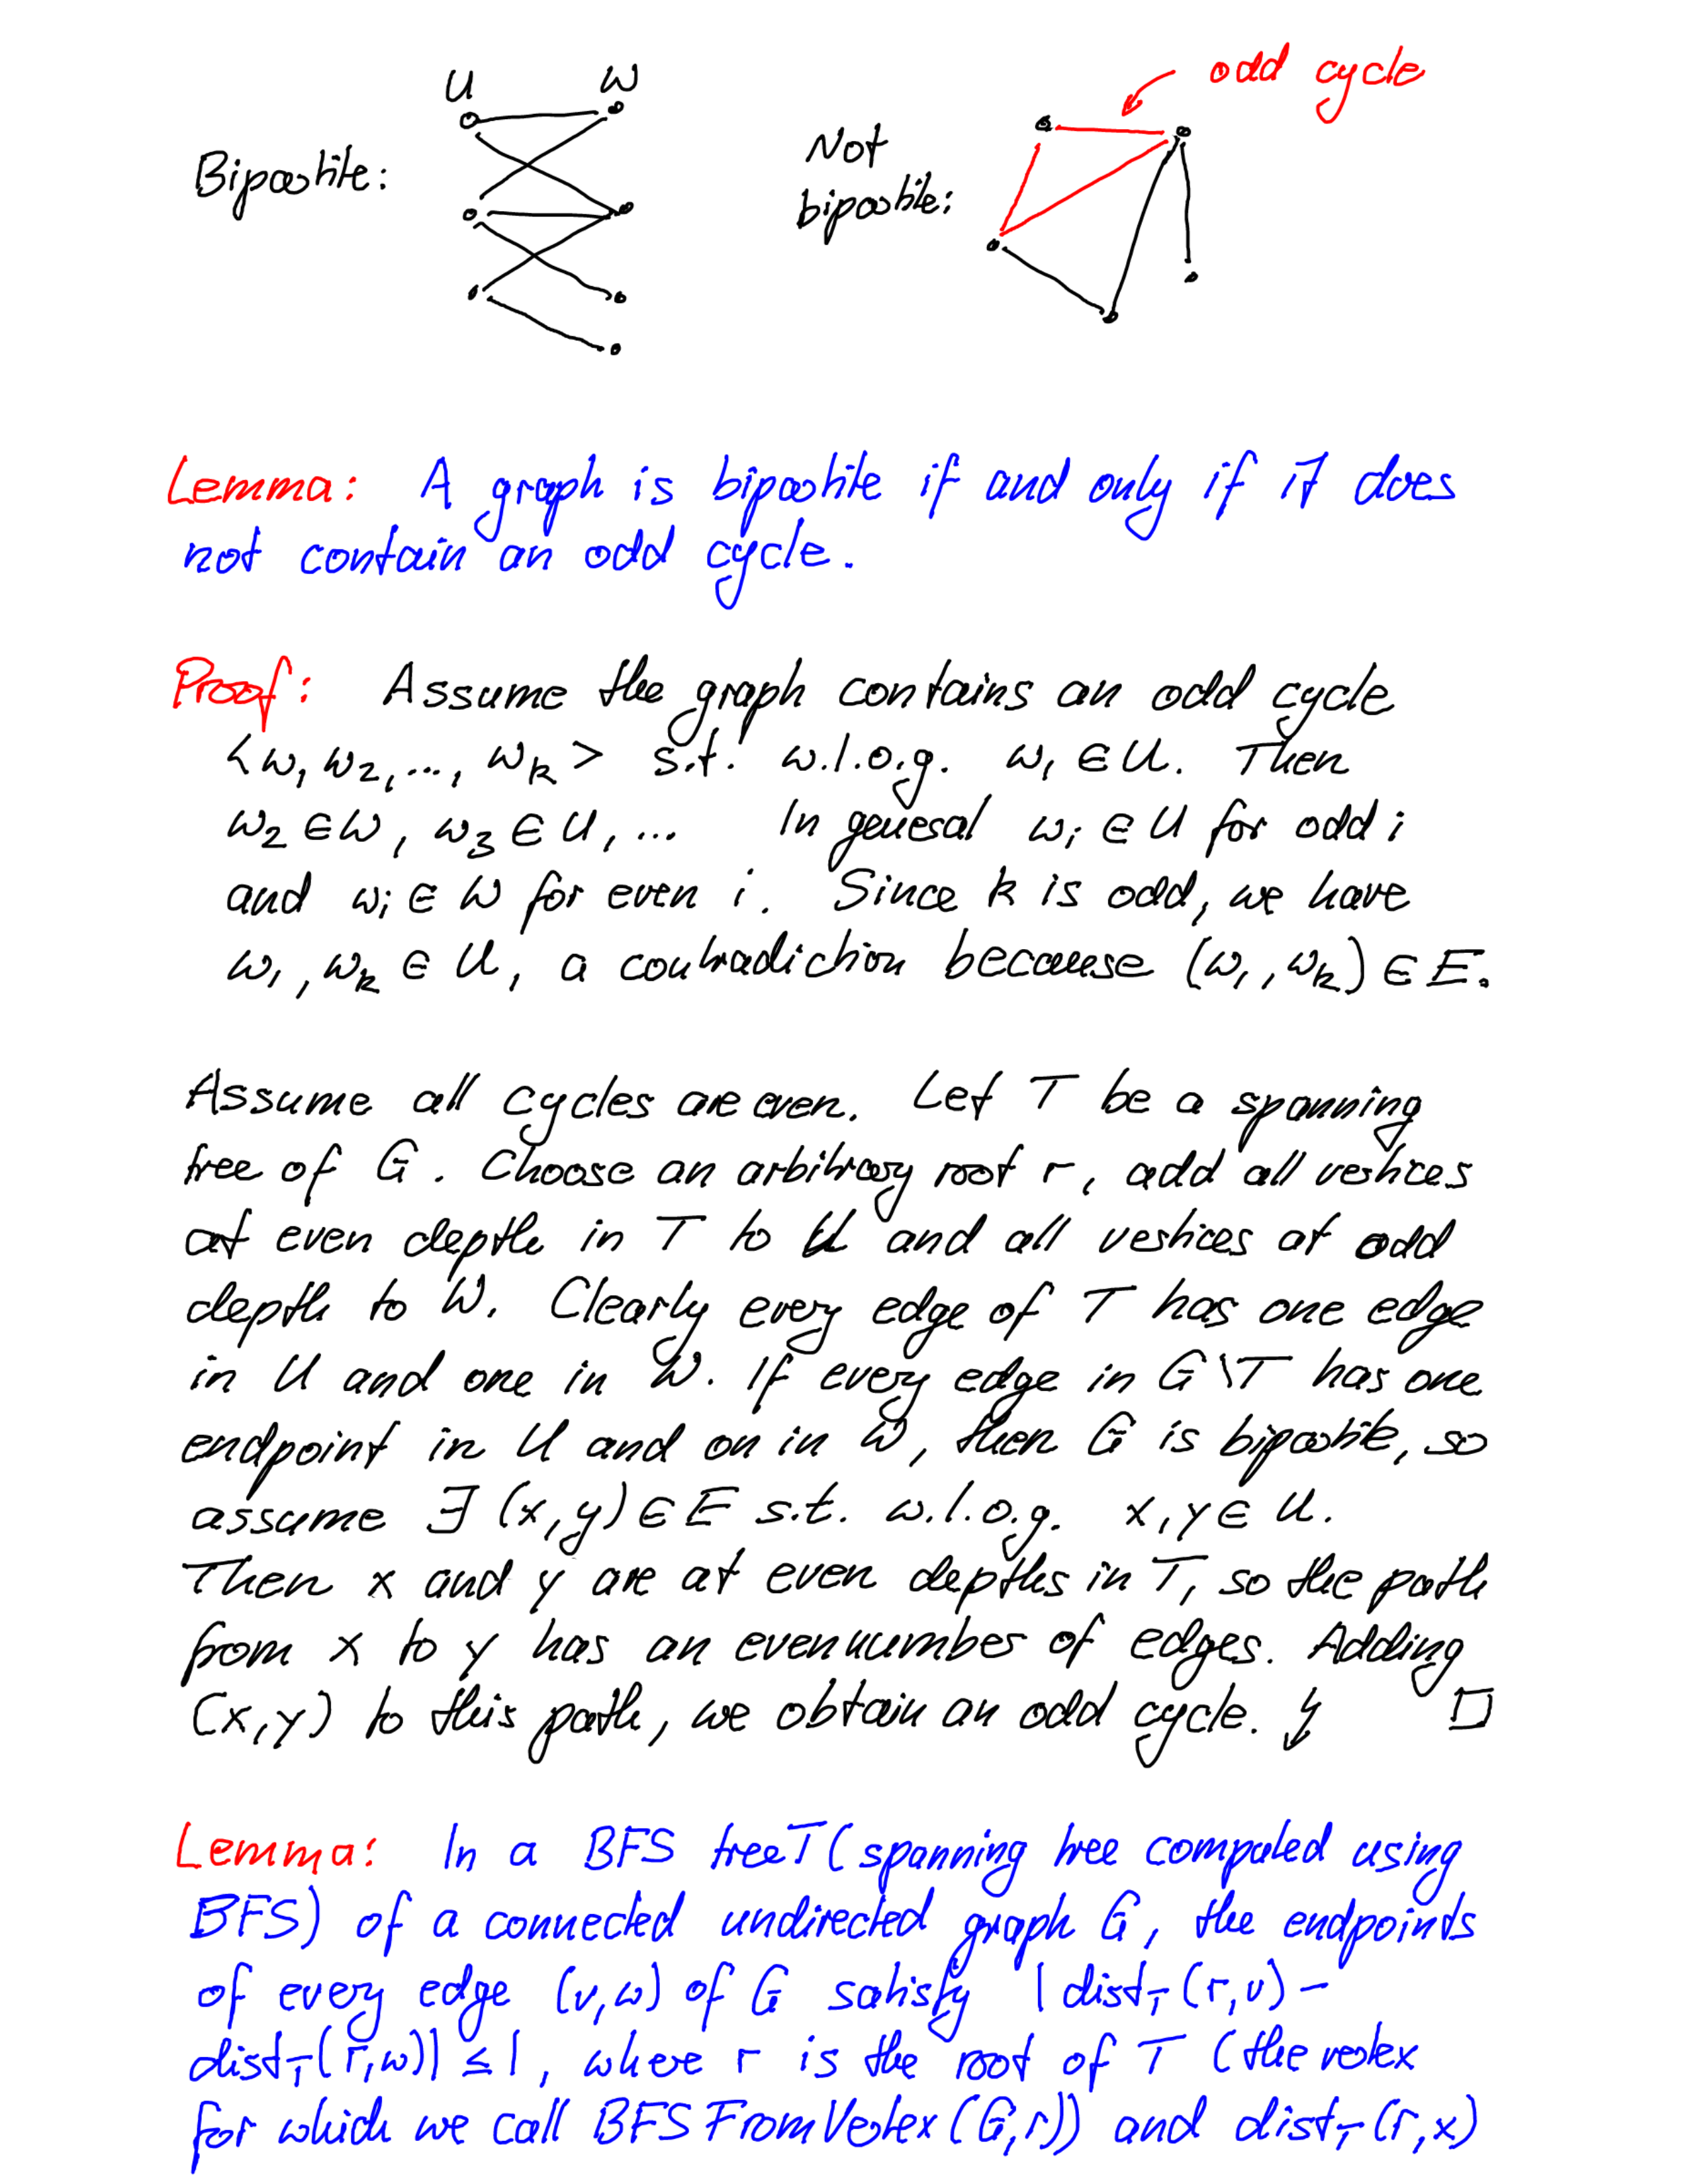 U W
odd cycle
Bipartite:
Not
bipartite:
Lemma: A graph is bipartite if and only if it does
not contain an odd cycle.
Proof: Assume the graph contains an odd cycle
<w₁, w₂, ..., wₖ> s.t. w.l.o.g. w₁ ∈ U. Then
w₂ ∈ W, w₃ ∈ U, ... In general wᵢ ∈ U for odd i
and wᵢ ∈ W for even i. Since k is odd, we have
w₁, wₖ ∈ U, a contradiction because (w₁, wₖ) ∈ E.
Assume all cycles are even. Let T be a spanning
tree of G. Choose an arbitrary root r, add all vertices
at even depth in T to U and all vertices at odd
depth to W. Clearly every edge of T has one edge
in U and one in W. If every edge in G\T has one
endpoint in U and on in W, then G is bipartite, so
assume ∃ (x,y) ∈ E s.t. w.l.o.g. x, y ∈ U.
Then x and y are at even depths in T, so the path
from x to y has an even number of edges. Adding
(x,y) to this path, we obtain an odd cycle. ↯ □
Lemma: In a BFS tree T (spanning tree computed using
BFS) of a connected undirected graph G, the endpoints
of every edge (v,w) of G satisfy |dist_T(r,v) −
dist_T(r,w)| ≤ 1, where r is the root of T (the vertex
for which we call BFSFromVertex(G,r)) and dist_T(r,x)